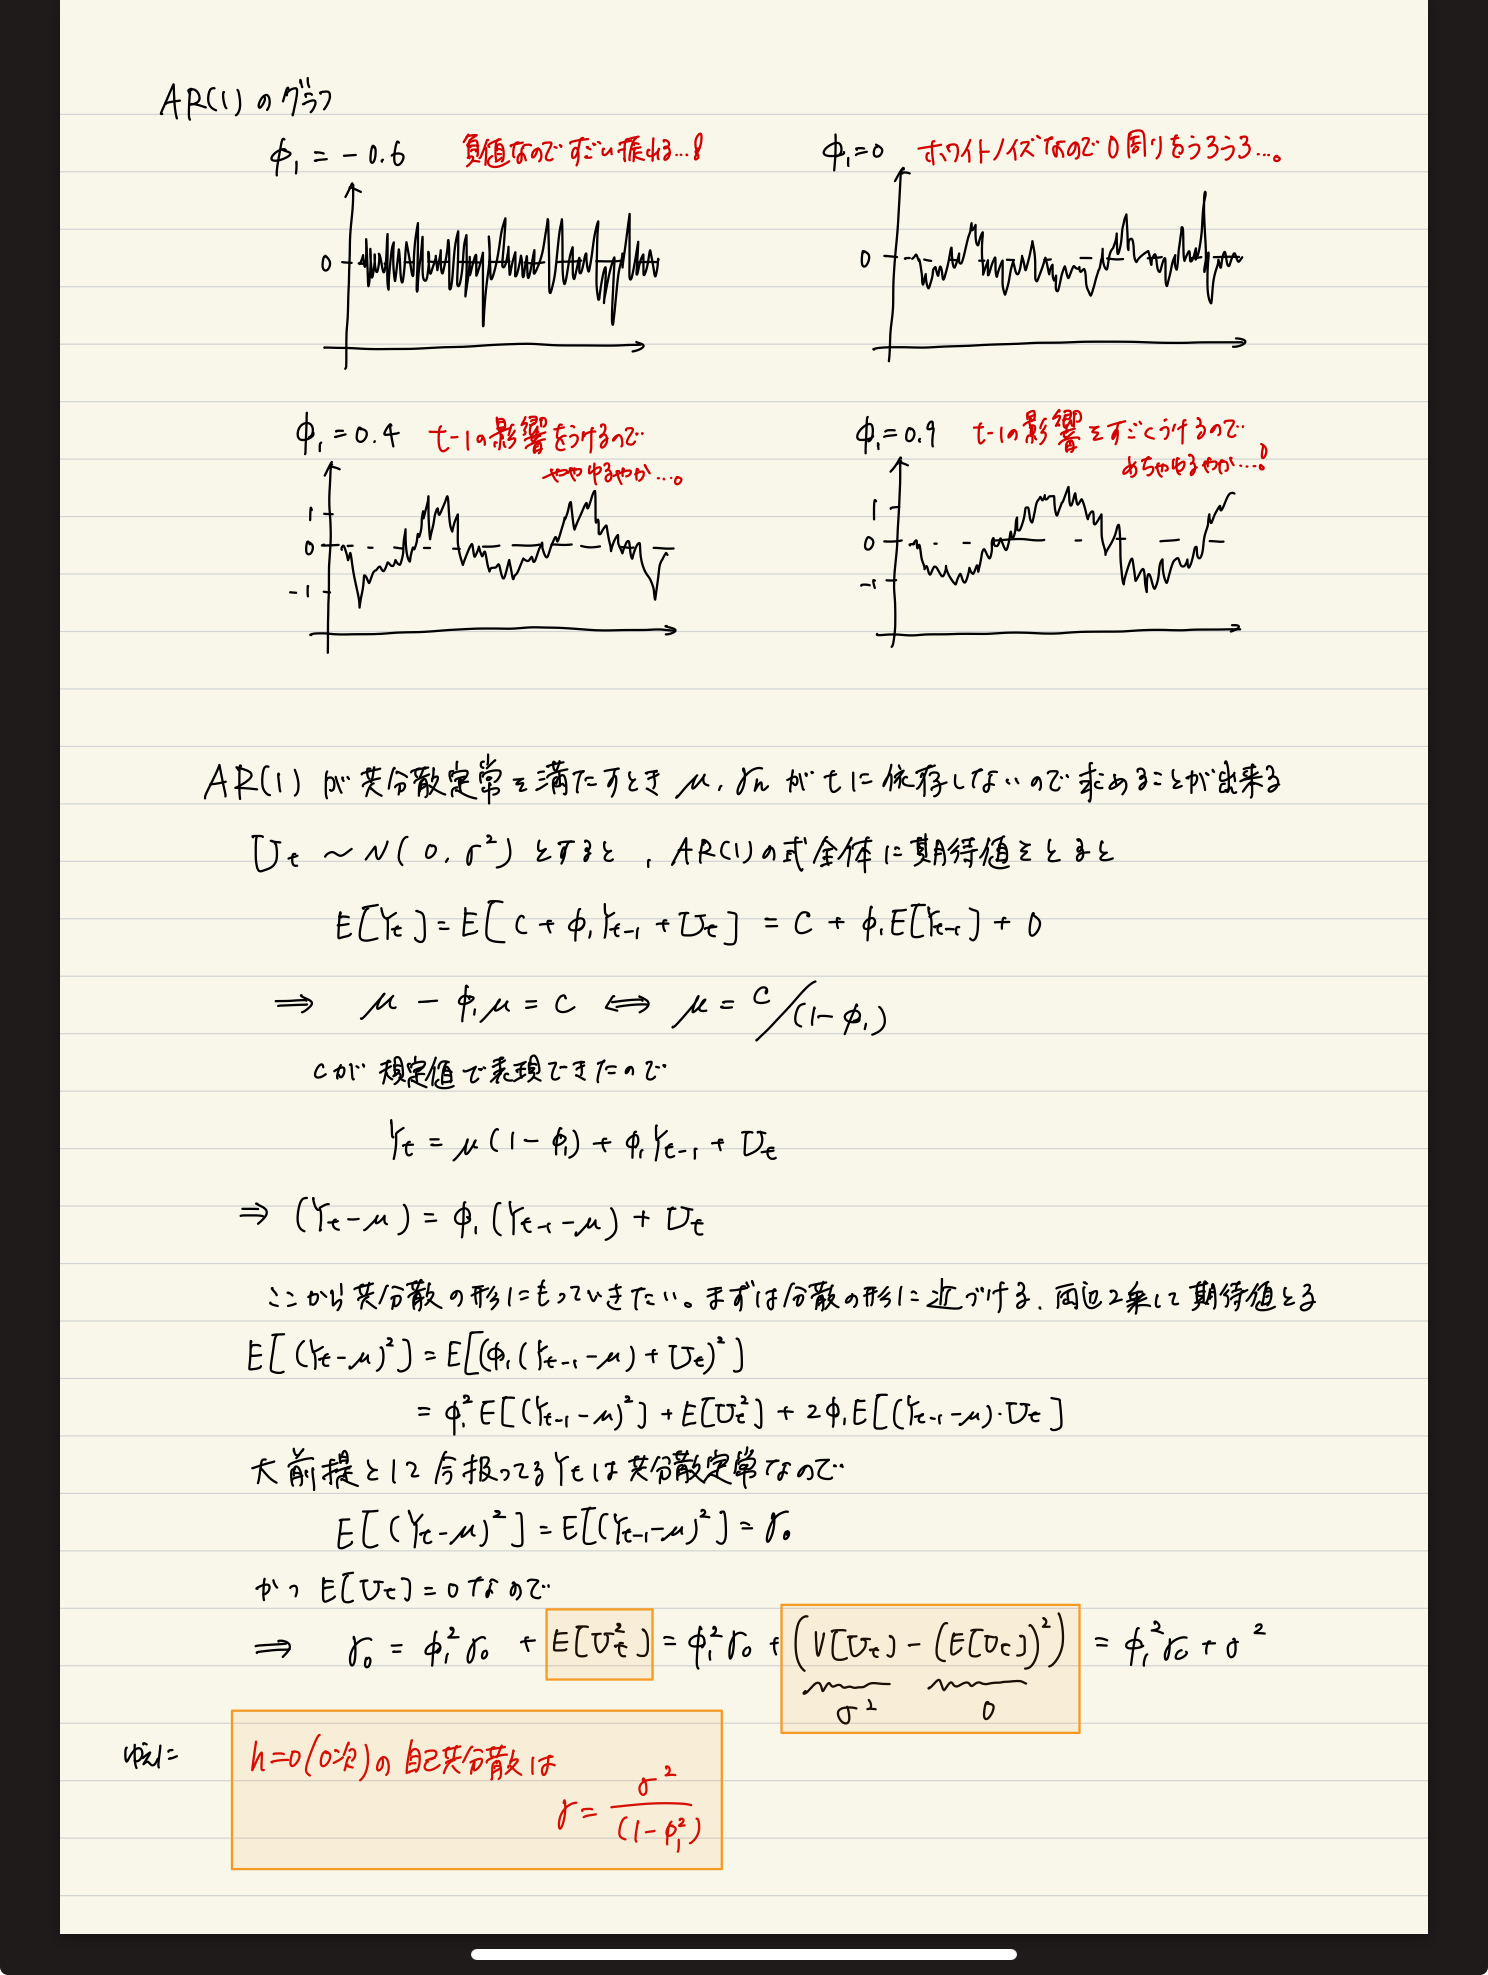 AR(1)のグラフ
φ₁ = -0.6 負値なのですごい振れる...!
φ₁=0 ホワイトノイズなので0周りをうろうろ...。
0
0
φ₁=0.4 t-1の影響をうけるので
ややゆるやか...。
φ₁=0.9 t-1の影響をすごくうけるので
めちゃゆるやか...!
1
0
-1
1
0
-1
AR(1)が共分散定常を満たすとき μ, γh がtに依存しないので求めることが出来る
Ut ~ N(0, σ²) とすると, AR(1)の式全体に期待値をとると
E[Yt] = E[C + φ₁Yt-1 + Ut] = C + φ₁E[Yt-1] + 0
⇒ μ - φ₁μ = C ⇔ μ = C/(1-φ₁)
Cが規定値で表現できたので
Yt = μ(1-φ₁) + φ₁Yt-1 + Ut
⇒ (Yt-μ) = φ₁(Yt-1-μ) + Ut
ここから共分散の形にもっていきたい。まずは分散の形に近づける、両辺2乗して期待値とる
E[(Yt-μ)²] = E[(φ₁(Yt-1-μ)+Ut)²]
= φ₁²E[(Yt-1-μ)²] + E[Ut²] + 2φ₁E[(Yt-1-μ)·Ut]
大前提として今扱ってるYtは共分散定常なので
E[(Yt-μ)²] = E[(Yt-1-μ)²] = γ₀
かつ E[Ut]=0 なので
⇒ γ₀ = φ₁²γ₀ + E[Ut²] = φ₁²γ₀ + (V[Ut] - (E[Ut])²) = φ₁²γ₀ + σ²
σ² 0
ゆえに
h=0(0次)の自己共分散は
γ = σ²/(1-φ₁²)